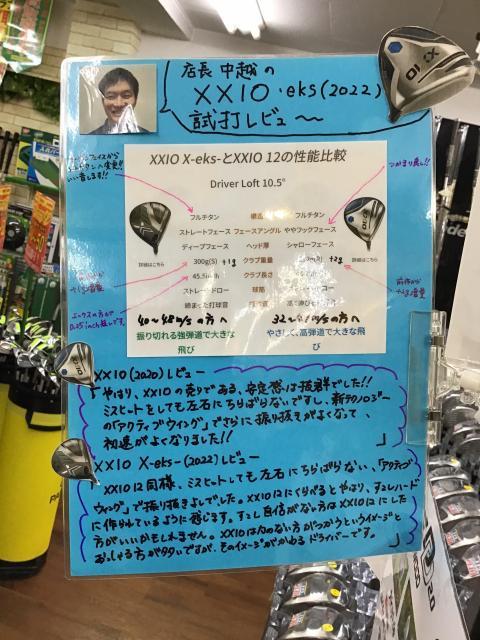 店長 中越の
XXIO・eks(2022)
試打レビュ〜
XXIO X-eks-とXXIO 12の性能比較
Driver Loft 10.5°
つかまり良し!!
フルチタン 構造 フルチタン
ストレートフェース フェースアングル ややフックフェース
ディープフェース ヘッド厚 シャローフェース
詳細はこちら 300g(S) +1g クラブ重量 +2g 詳細はこちら
45.5inch クラブ長さ
ストレートドロー 球筋
締まった打球音
エックスの方が
0.25inch短しです。
40〜48m/sの方へ
32〜41m/sの方へ
振り切れる強弾道で大きな
飛び
やさしく、高弾道で大きな飛
び
XXIO(2020)レビュー
「やはり、XXIOの売りである、安定感は抜群でした!!
ミスヒートをしても左右にちらばらないですし、新テクノロジー
の「アクティブウイング」でさらに振り抜きがよくなって、
初速がよくなりました!!」
XXIO X-eks-(2022)レビュー
「XXIO12同様、ミスヒートしても左右にちらばらない、「アクティブ
ウィング」で振り抜きよしでした。XXIO12にくらべるとやはり、すこしハード
に作られているように感じます。すこし自信がない方はXXIO12にした
方がいいかもしれません。XXIOは力のない方がつかうというイメージと
おっしゃる方が多いですが、そのイメージがかわるドライバーです。」